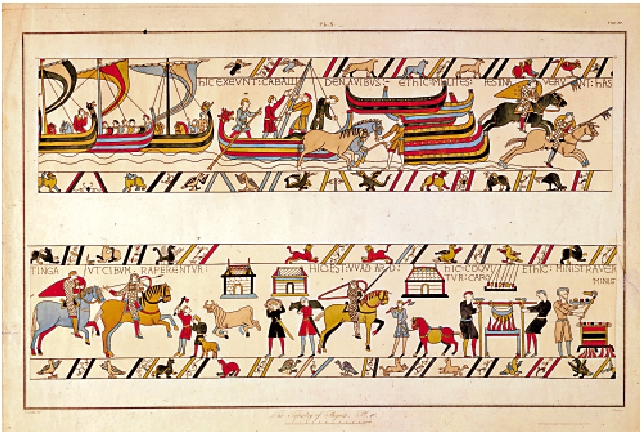 hIC EXEVNT: CABALLI DENAVIBUS:- ETHIC: MILITES: FESTINA VERUNT: HAS
TINGA UT CIBUM. RAPERENTUR: HIC EST: WADARD: hIC: COQV ETHIC: MINISTRAVER
TVR: CARO MINIS
The Tapestry of Bayeux